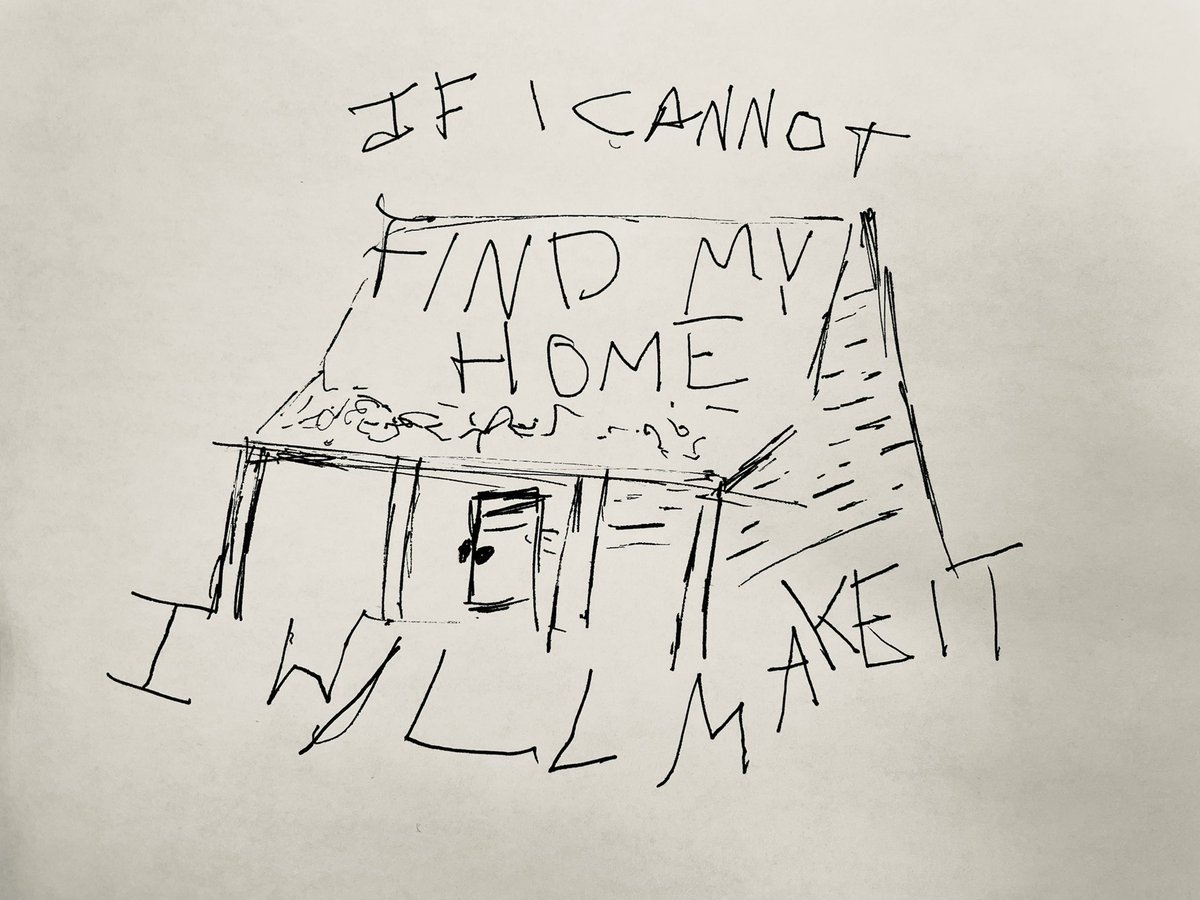 IF I CANNOT
FIND MY
HOME
I WILL MAKE IT